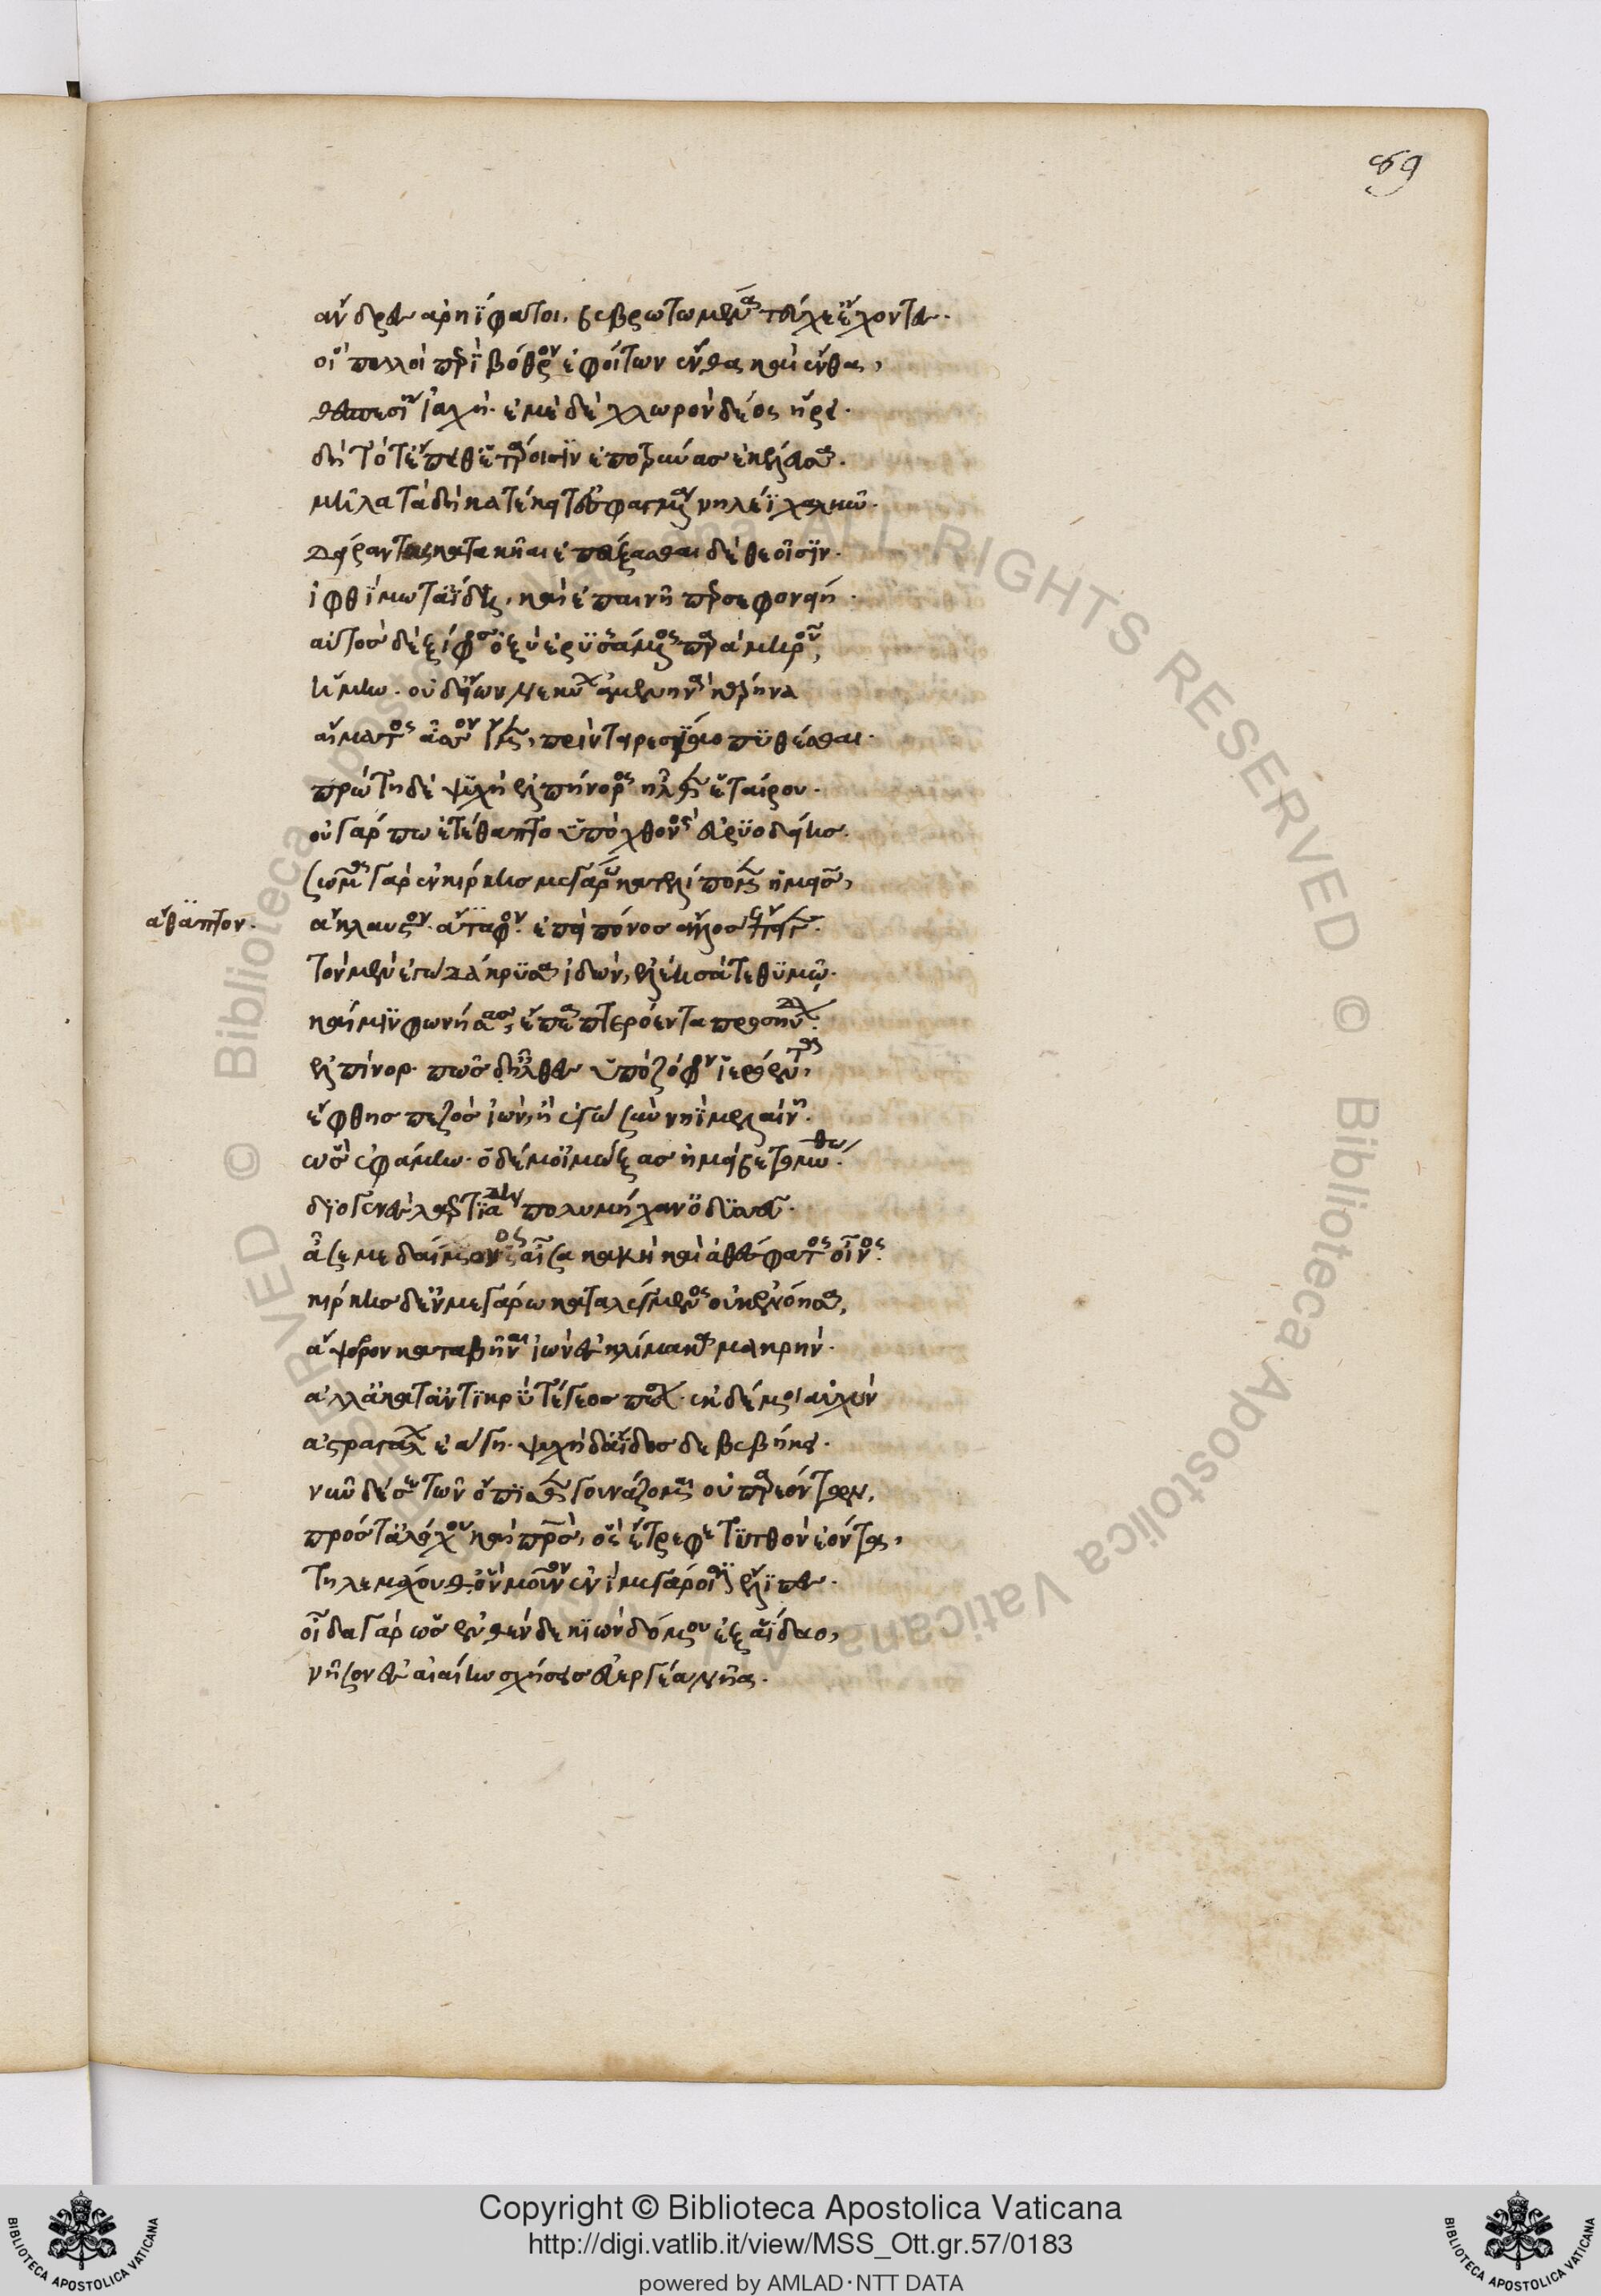 ἄνδρες ἀρηΐφατοι, βεβρωτωμένα τεύχε' ἔχοντες.
οἳ πολλοὶ περὶ βόθρον ἐφοίτων ἔνθα καὶ ἔνθα,
θεσπεσίη ἰαχή· ἐμὲ δὲ χλωρὸν δέος ᾕρει.
δὴ τότ' ἔπειθ' ἑτάροισϊν ἐποτρύνας ἐκέλευσα.
μῆλα τὰ δὴ κατέκειτο ἐσφαγμένα νηλέϊ χαλκῶ.
δείραντας κατακῆαι ἐπεύξασθαι δὲ θεοῖσϊν.
ἰφθίμω τ' ἀΐδη, καὶ ἐπαινῆ περσεφονείη.
αὐτὸς δὲ ξίφος ὀξὺ ἐρϋσάμενος παρὰ μηροῦ,
ἥμην. οὐδ' εἴων νεκύων ἀμενηνὰ κάρηνα
αἵματος ἆσσον ἴμεν, πρὶν τειρεσίαο πϋθέσθαι.
πρώτη δὲ ψϋχὴ ἐλπήνορος ἦλθεν ἑταίρου.
οὐ γάρ πω ἐτέθαπτο ὑπὸ χθονὸς εὐρϋοδείης.
σῶμα γὰρ ἐν κίρκης μεγάρω κατελείπομεν ἡμεῖς,
ἄθαπτον. ἄκλαυστον. ἄταφον. ἐπεὶ πόνος ἄλλος ἔπειγεν.
τὸν μὲν ἐγὼ δάκρϋσα ἰδὼν, ἐλέησά τε θϋμῶ.
καί μϊν φωνήσας, ἔπεα πτερόεντα προσηύδων.
ἐλπῆνορ. πῶς ἦλθες ὑπὸ ζόφον ἠερόεντα,
ἔφθης πεζὸς ἰὼν, ἢ ἐγὼ σὺν νηῒ μελαίνη.
ὣς ἐφάμην. ὁ δέ μ' οἰμώξας ἠμείβετο μύθω.
δϊογενὲς λαερτϊάδη πολυμήχαν' ὀδϋσσεῦ.
ἆσέ με δαίμονος αἶσα κακὴ καὶ ἀθέσφατος οἶνος.
κίρκης δ' ἐν μεγάρω καταλέγμενος οὐκ ἐνόησα,
ἄψορρον καταβῆναι ἰὼν ἐς κλίμακα μακρήν.
ἀλλὰ καταντϊκρὺ τέγεος πέσον. ἐκ δέ μοι αὐχὴν
ἀστραγάλων ἐάγη. ψυχὴ δ' ἄϊδος δε βεβήκει.
νῦν δέ σε τῶν ὄπϊθεν γουνάζομαι οὐ παρεόντων,
πρός τ' ἀλόχου καὶ πατρὸς, ὅ σ' ἔτρεφε τϋτθὸν ἐόντα,
τηλεμάχου θ' ὃν μοῦνον ἐνὶ μεγάροισϊν ἔλειπες.
οἶδα γὰρ ὡς ἐνθένδε κϊὼν δόμου ἐξ ἀΐδαο,
νῆσον ἐς αἰαίην σχήσεις εὐεργέα νῆα.
Copyright © Biblioteca Apostolica Vaticana
http://digi.vatlib.it/view/MSS_Ott.gr.57/0183
powered by AMLAD·NTT DATA